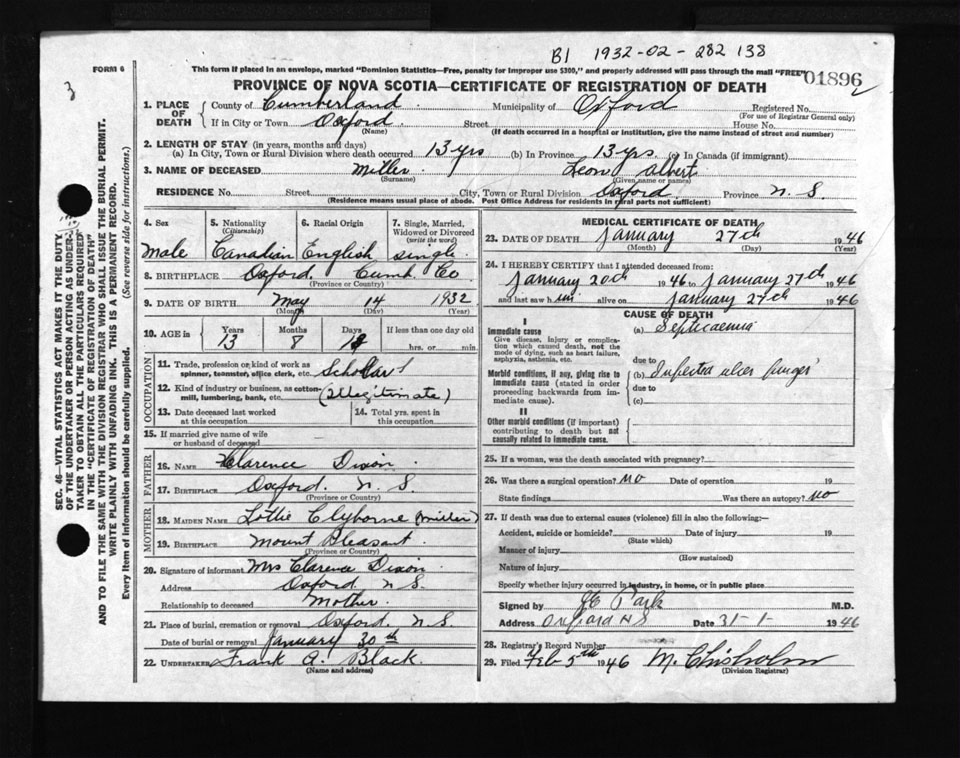 B1 1932-02-282 138
FORM 6
This form if placed in an envelope, marked "Dominion Statistics—Free, penalty for improper use $300," and properly addressed will pass through the mail "FREE"
01896
3
2
PROVINCE OF NOVA SCOTIA—CERTIFICATE OF REGISTRATION OF DEATH
1. PLACE OF DEATH
County of Cumberland Municipality of Oxford Registered No.
(For use of Registrar General only)
If in City or Town Oxford Street House No.
(Name) (If death occurred in a hospital or institution, give the name instead of street and number)
2. LENGTH OF STAY (in years, months and days)
(a) In City, Town or Rural Division where death occurred 13 yrs (b) In Province 13 yrs. (c) In Canada (if immigrant)
3. NAME OF DECEASED Miller Leon Albert
(Surname) (Given name or names)
RESIDENCE No. Street City, Town or Rural Division Oxford Province N. S
(Residence means usual place of abode. Post Office Address for residents in rural parts not sufficient)
4. Sex 5. Nationality (Citizenship) 6. Racial Origin 7. Single, Married, Widowed or Divorced (write the word)
Male Canadian English single
8. BIRTHPLACE Oxford Cumb Co
(Province or Country)
9. DATE OF BIRTH May 14 1932
(Month) (Day) (Year)
10. AGE in Years Months Days If less than one day old
13 8 hrs. or min.
OCCUPATION
11. Trade, profession or kind of work as spinner, teamster, office clerk, etc. Scholar
12. Kind of industry or business, as cotton-mill, lumbering, bank, etc. (illegitimate)
13. Date deceased last worked at this occupation
14. Total yrs. spent in this occupation
15. If married give name of wife or husband of deceased
FATHER
16. NAME Clarence Dixon
17. BIRTHPLACE Oxford. N. S.
(Province or Country)
MOTHER
18. MAIDEN NAME Lottie Clyborne (Miller)
19. BIRTHPLACE Mount Pleasant
(Province or Country)
20. Signature of informant Mrs Clarence Dixon
Address Oxford N S.
Relationship to deceased Mother.
21. Place of burial, cremation or removal Oxford. N. S.
Date of burial or removal January 30th
22. UNDERTAKER Frank A. Black.
(Name and address)
MEDICAL CERTIFICATE OF DEATH
23. DATE OF DEATH January 27th 1946
(Month) (Day) (Year)
24. I HEREBY CERTIFY that I attended deceased from:
January 20th 1946 to January 27th 1946
and last saw him alive on January 27th 1946
CAUSE OF DEATH
I
Immediate cause (a) Septicaemia
Give disease, injury or complication which caused death, not the mode of dying, such as heart failure, asphyxia, asthenia, etc.
due to
Morbid conditions, if any, giving rise to immediate cause (stated in order proceeding backwards from immediate cause).
(b) Infected ulcer finger
due to
(c)
II
Other morbid conditions (if important) contributing to death but not causally related to immediate cause.
25. If a woman, was the death associated with pregnancy?
26. Was there a surgical operation? No Date of operation 19
State findings Was there an autopsy? No
27. If death was due to external causes (violence) fill in also the following:—
Accident, suicide or homicide? Date of injury 19
(State which)
Manner of injury
(How sustained)
Nature of injury
Specify whether injury occurred in industry, in home, or in public place
Signed by Park M.D.
Address Oxford N S Date 31-1- 1946
28. Registrar's Record Number
29. Filed Feb 5th 1946 M. Chisholm
(Division Registrar)
SEC. 46—VITAL STATISTICS ACT MAKES IT THE DUTY OF THE UNDERTAKER OR PERSON ACTING AS UNDERTAKER TO OBTAIN ALL THE PARTICULARS REQUIRED IN THE "CERTIFICATE OF REGISTRATION OF DEATH" AND TO FILE THE SAME WITH THE DIVISION REGISTRAR WHO SHALL ISSUE THE BURIAL PERMIT.
WRITE PLAINLY WITH UNFADING INK. THIS IS A PERMANENT RECORD.
Every item of information should be carefully supplied. (See reverse side for instructions.)